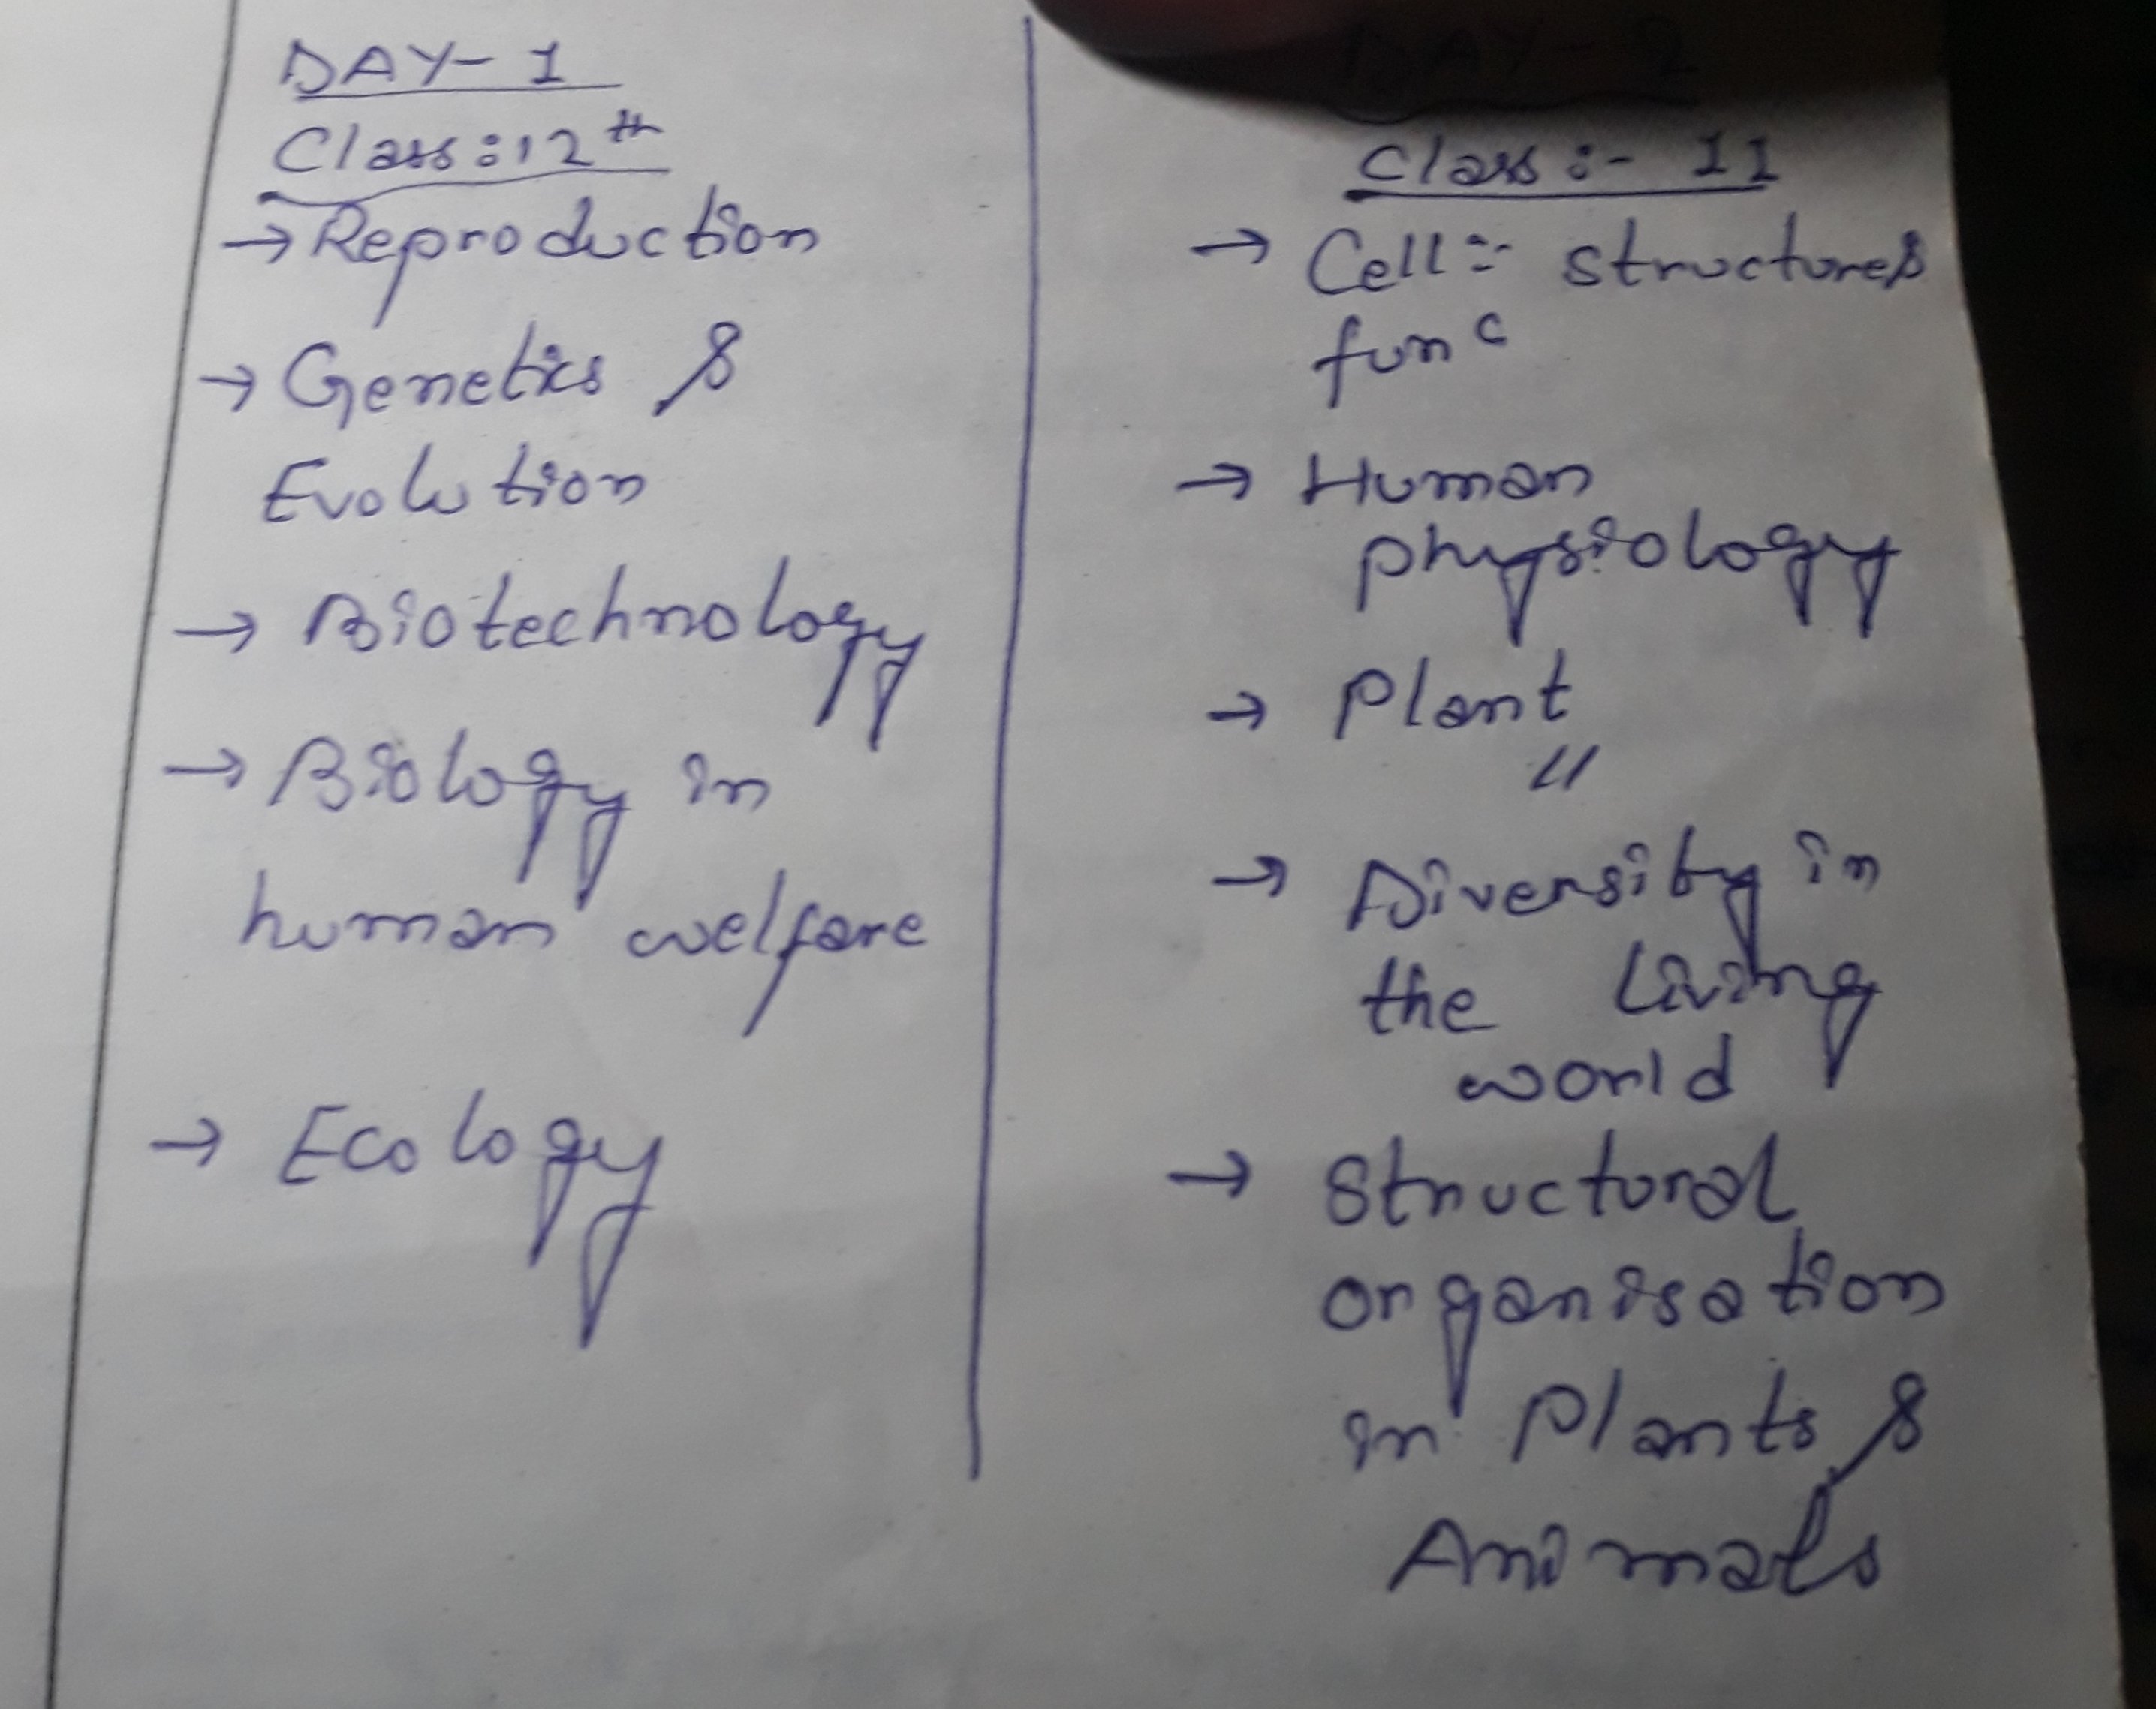 DAY-1
Class:12th
→Reproduction
→ Genetics &
Evolution
→ Biotechnology
→ Biology in
human welfare
→ Ecology
DAY-2
Class:- 11
→ Cell:- structure&
func
→ Human
physiology
→ Plant
"
→ Diversity in
the Living
world
→ Structural
organisation
in Plants &
Animals